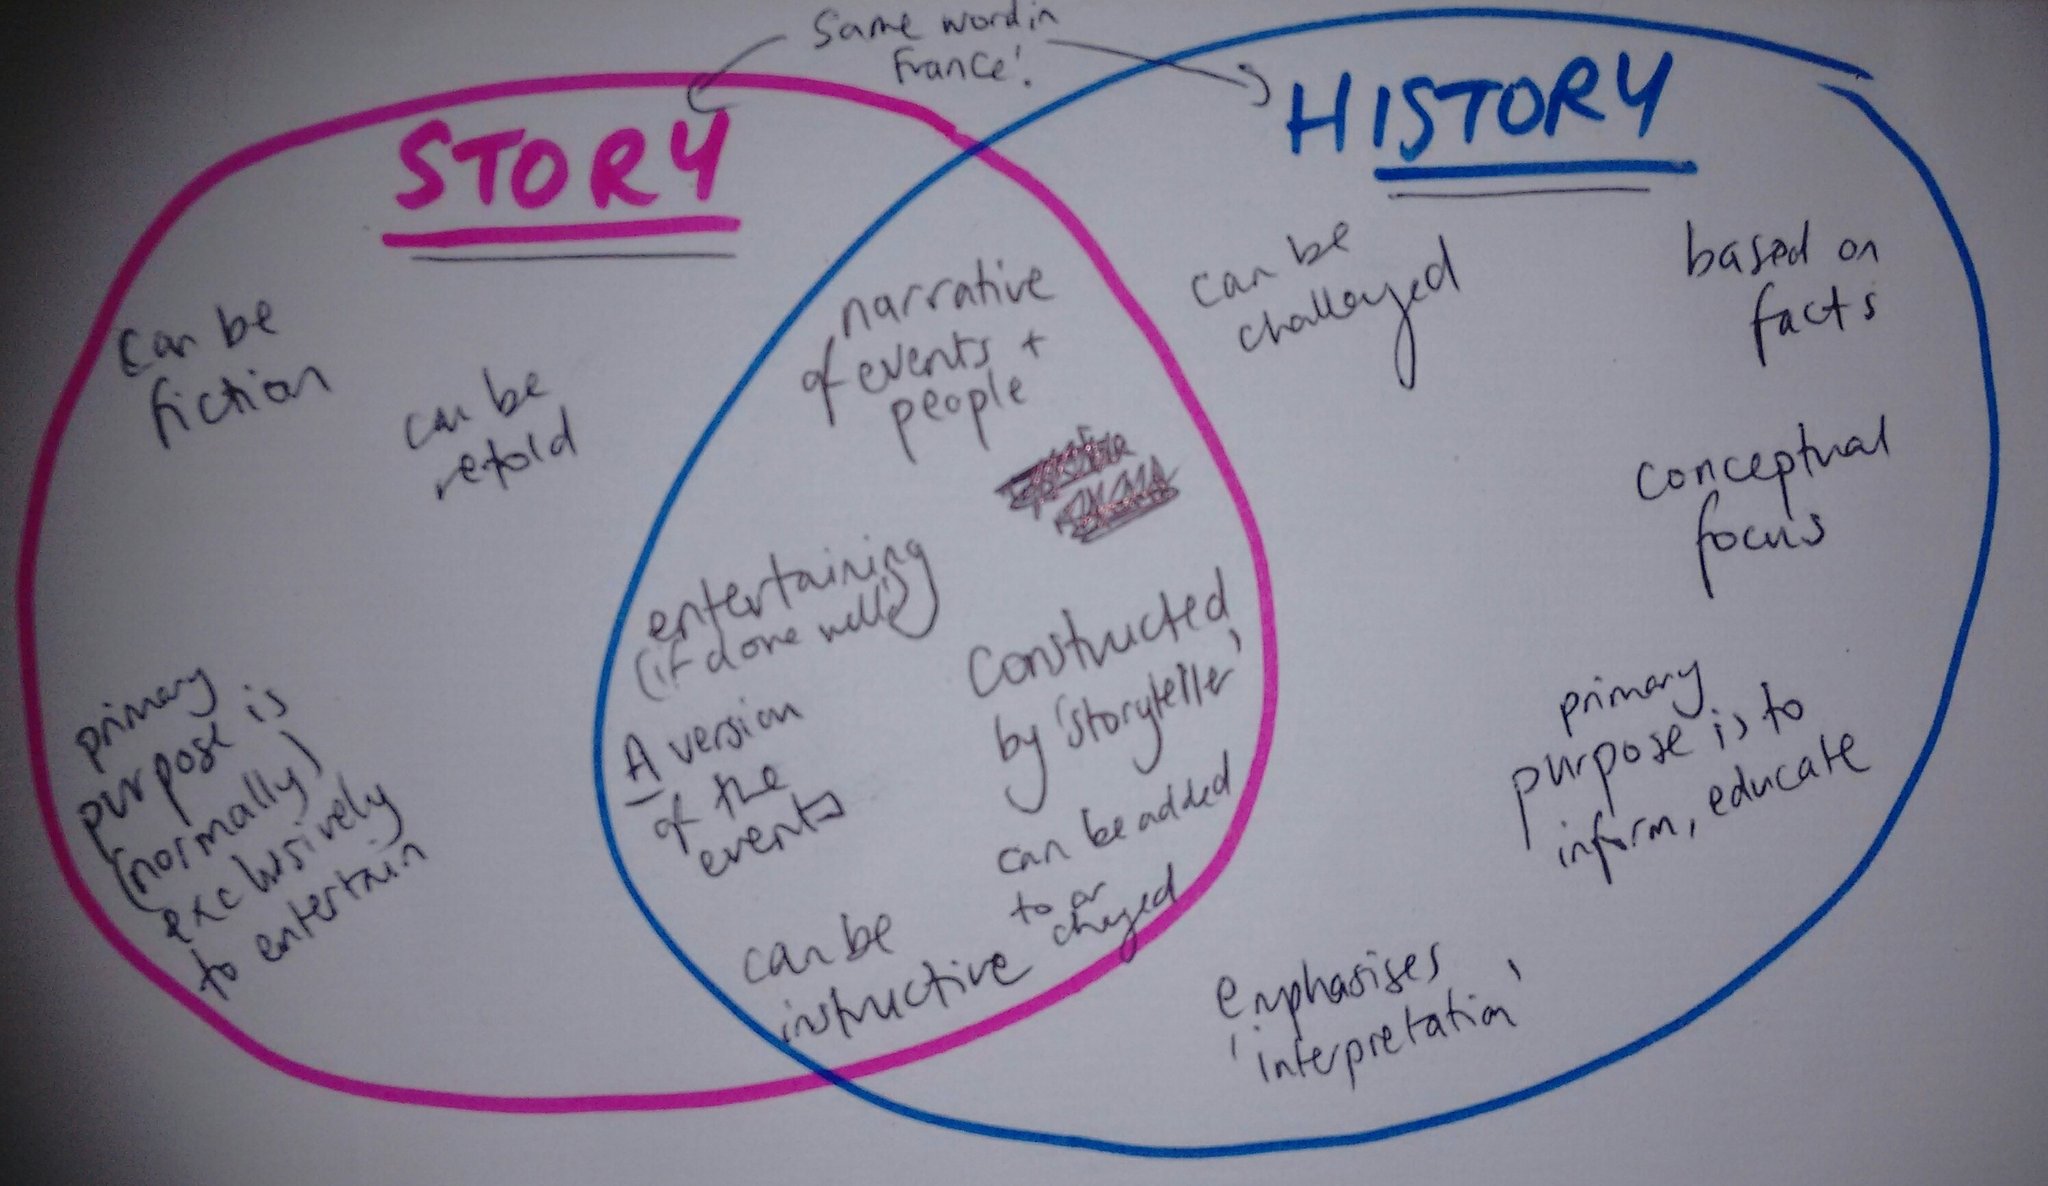 Same word in
France!
STORY
HISTORY
can be
fiction
can be
retold
primary
purpose is
(normally)
exclusively
to entertain
narrative
of events +
people
entertaining
(if done well!)
A version
of the
events
constructed
by 'storyteller'
can be added
to or
changed
can be
instructive
can be
challenged
based on
facts
conceptual
focus
primary
purpose is to
inform, educate
emphasises
'interpretation'